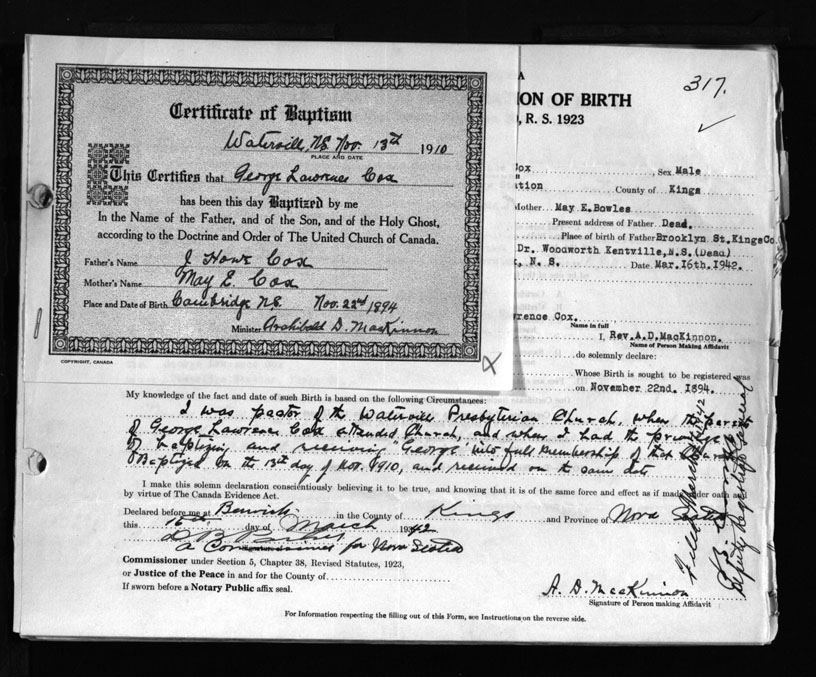 Certificate of Baptism
Waterville, N.S. Nov. 13th 1910
PLACE AND DATE
This Certifies that George Lawrence Cox
has been this day Baptized by me
In the Name of the Father, and of the Son, and of the Holy Ghost,
according to the Doctrine and Order of The United Church of Canada.
Father's Name J Howe Cox
Mother's Name May E. Cox
Place and Date of Birth Cambridge N.S. Nov. 22nd 1894
Minister Archibald D. MacKinnon
COPYRIGHT, CANADA
X
A
317.
ON OF BIRTH
, R. S. 1923
Cox, Sex Male
ation County of Kings
Mother May E.Bowles
Present address of Father Dead.
Place of birth of Father Brooklyn St.Kings Co
Dr. Woodworth Kentville,N.S.(Dead)
, N. S. Date Mar.16th.1942.
wrence Cox.
Name in full
I, Rev.A.D.MacKinnon.
Name of Person Making Affidavit
do solemnly declare:
Whose Birth is sought to be registered was
on November 22nd. 1894.
My knowledge of the fact and date of such Birth is based on the following Circumstances:
I was pastor of the Waterville Presbyterian Church, when the parents
of George Lawrence Cox attended Church, and when I had the privilege
of baptizing and receiving George into full membership of that Church
Baptized on the 13th day of Nov. 1910, and received on the same date
I make this solemn declaration conscientiously believing it to be true, and knowing that it is of the same force and effect as if made under oath and
by virtue of The Canada Evidence Act.
Declared before me at Berwick in the County of Kings and Province of Nova Scotia
this 16th day of March 1942
A Commissioner for Nova Scotia
Commissioner under Section 5, Chapter 38, Revised Statutes, 1923,
or Justice of the Peace in and for the County of
If sworn before a Notary Public affix seal.
A. D. MacKinnon
Signature of Person making Affidavit
For Information respecting the filling out of this Form, see Instructions on the reverse side.
Filed March
Deputy Registrar General